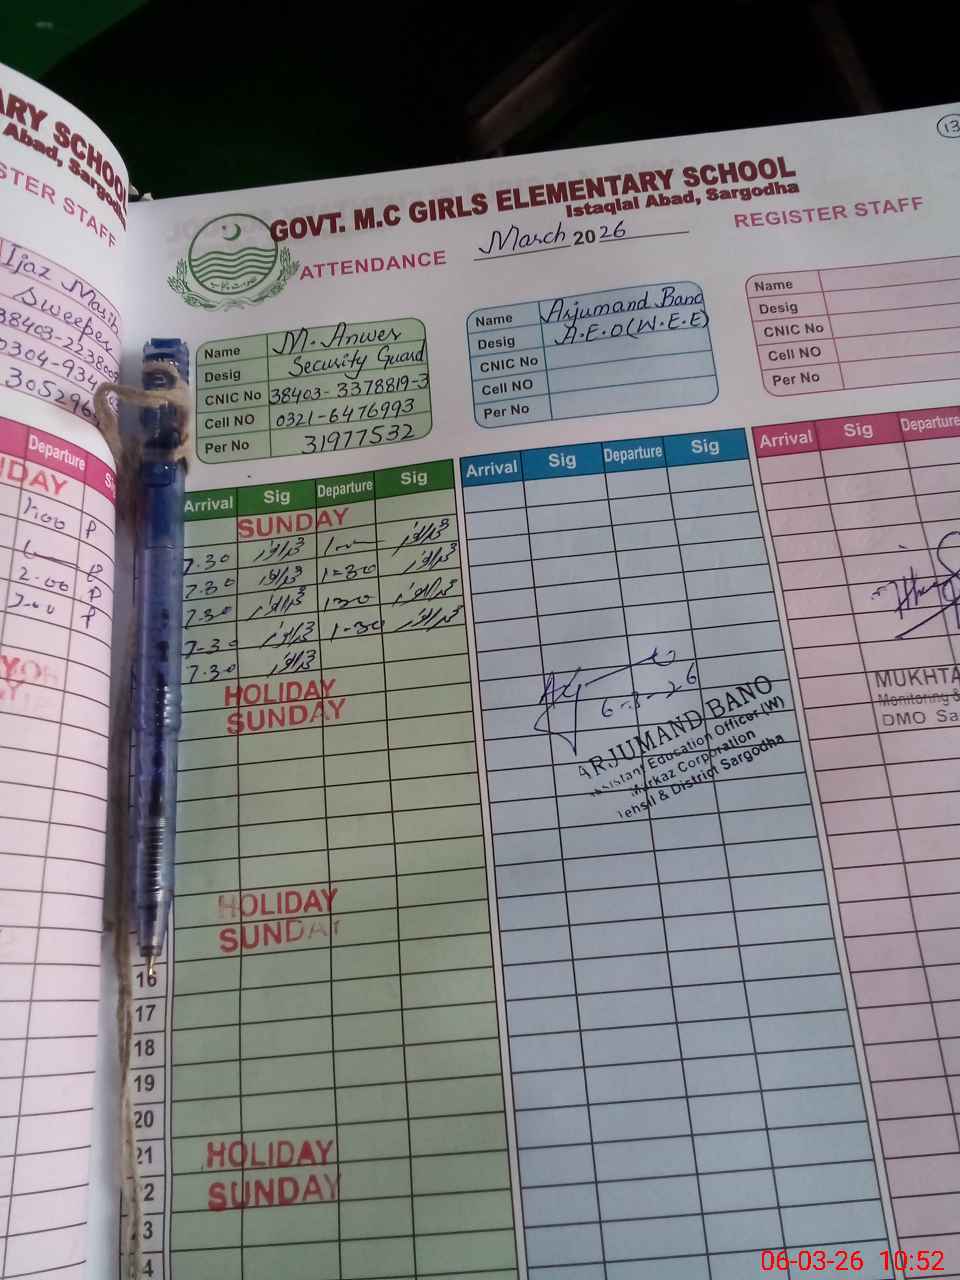 ARY SCHOOL
Abad, Sargodha
STER STAFF
Ijaz Masih
Sweeper
13
GOVT. M.C GIRLS ELEMENTARY SCHOOL
Istaqlal Abad, Sargodha
ATTENDANCE March 2026 REGISTER STAFF
Name M. Anwer
Desig Security Guard
CNIC No 38403-3378819-3
Cell NO 0321-6476993
Per No 31977532
Name Arjumand Bano
Desig A.E.O(W.E.E)
CNIC No
Cell NO
Per No
Name
Desig
CNIC No
Cell NO
Per No
Departure
1:00 P
2.00 P
Arrival Sig Departure Sig
Arrival Sig Departure Sig
Arrival Sig Departure
SUNDAY
7.30
7.30 1-30
7.30 130
7-30 1-30
7.30
HOLIDAY
SUNDAY
6-3-26
ARJUMAND BANO
Assistant Education Officer (W)
Markaz Corporation
Tehsil & District Sargodha
MUKHTA
Monitoring &
DMO Sa
HOLIDAY
SUNDAY
16
17
18
19
20
21 HOLIDAY
22 SUNDAY
3
4
06-03-26 10:52